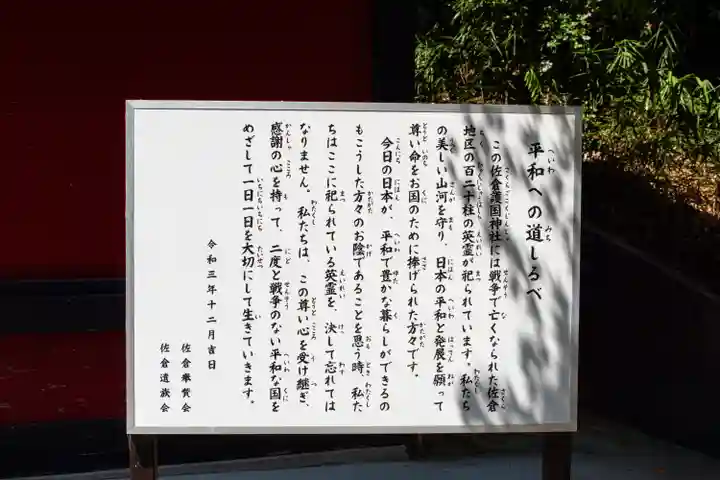 平和への道しるべ
この佐倉護国神社には戦争で亡くなられた佐倉
地区の百二十柱の英霊が祀られています。私たち
の美しい山河を守り、日本の平和と発展を願って
尊い命をお国のために捧げられた方々です。
今日の日本が、平和で豊かな暮らしができるの
もこうした方々のお陰であることを思う時、私た
ちはここに祀られている英霊を、決して忘れては
なりません。私たちは、この尊い心を受け継ぎ、
感謝の心を持って、二度と戦争のない平和な国を
めざして一日一日を大切にして生きていきます。
令和三年十二月吉日
佐倉奉賛会
佐倉遺族会